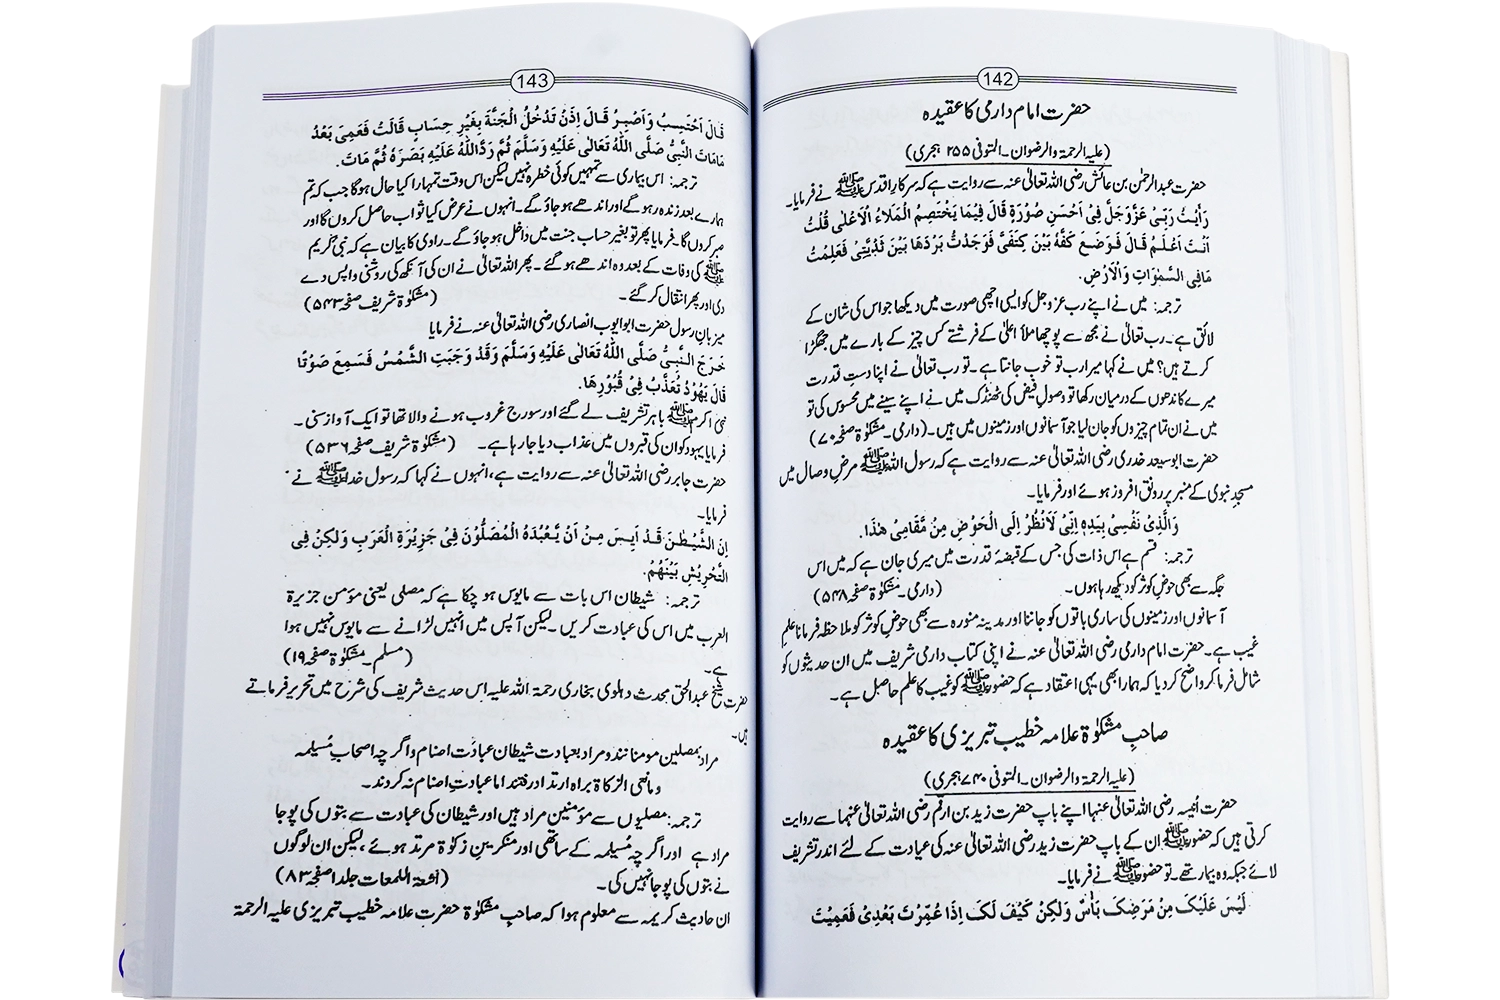 142
حضرت امام دارمی کا عقیدہ
(علیہ الرحمۃ والرضوان۔ المتوفی ۲۵۵ ہجری)
حضرت عبدالرحمٰن بن عائش رضی اللہ تعالیٰ عنہ سے روایت ہے کہ سرکار اقدس ﷺ نے فرمایا۔
رَأَیْتُ رَبِّیْ عَزَّوَجَلَّ فِیْ اَحْسَنِ صُوْرَۃٍ قَالَ فِیْمَا یَخْتَصِمُ الْمَلَاءُ الْاَعْلٰی قُلْتُ
اَنْتَ اَعْلَمُ قَالَ فَوَضَعَ کَفَّہٗ بَیْنَ کَتِفَیَّ فَوَجَدْتُّ بَرْدَھَا بَیْنَ ثَدْیَیَّ فَعَلِمْتُ
مَافِی السَّمٰوَاتِ وَالْاَرْضِ.
ترجمہ: میں نے اپنے رب عزوجل کو ایسی اچھی صورت میں دیکھا جو اس کی شان کے
لائق ہے۔ رب تعالیٰ نے مجھ سے پوچھا ملأ اعلیٰ کے فرشتے کس چیز کے بارے میں جھگڑا
کرتے ہیں؟ میں نے کہا میرا رب تو خوب جانتا ہے۔ تو رب تعالیٰ نے اپنا دستِ قدرت
میرے کاندھوں کے درمیان رکھا تو وصولِ فیض کی ٹھنڈک میں نے اپنے سینے میں محسوس کی تو
میں نے ان تمام چیزوں کو جان لیا جو آسمانوں اور زمینوں میں ہیں۔ (دارمی۔ مشکوٰۃ صفحہ ۷۰)
حضرت ابو سعید خدری رضی اللہ تعالیٰ عنہ سے روایت ہے کہ رسول اللہ ﷺ مرضِ وصال میں
مسجدِ نبوی کے منبر پر رونق افروز ہوئے اور فرمایا۔
وَالَّذِیْ نَفْسِیْ بِیَدِہٖ اِنِّیْ لَاَنْظُرُ اِلَی الْحَوْضِ مِنْ مَّقَامِیْ ھٰذَا.
ترجمہ: قسم ہے اس ذات کی جس کے قبضۂ قدرت میں میری جان ہے کہ میں اس
جگہ سے بھی حوضِ کوثر کو دیکھ رہا ہوں۔ (دارمی۔ مشکوٰۃ صفحہ ۵۴۸)
آسمانوں اور زمینوں کی ساری باتوں کو جاننا اور مدینہ منورہ سے بھی حوضِ کوثر کو ملاحظہ فرمانا علمِ
غیب ہے۔ حضرت امام دارمی رضی اللہ تعالیٰ عنہ نے اپنی کتاب دارمی شریف میں ان حدیثوں کو
شامل فرما کر واضح کر دیا کہ ہمارا بھی یہی اعتقاد ہے کہ حضور ﷺ کو غیب کا علم حاصل ہے۔
صاحبِ مشکوٰۃ علامہ خطیب تبریزی کا عقیدہ
(علیہ الرحمۃ والرضوان۔ المتوفی ۷۴۰ ہجری)
حضرت اُنیسہ رضی اللہ تعالیٰ عنہا اپنے باپ حضرت زید بن ارقم رضی اللہ تعالیٰ عنہما سے روایت
کرتی ہیں کہ حضور ﷺ ان کے باپ حضرت زید رضی اللہ تعالیٰ عنہ کی عیادت کے لئے اندر تشریف
لائے جبکہ وہ بیمار تھے۔ تو حضور ﷺ نے فرمایا۔
لَیْسَ عَلَیْکَ مِنْ مَرَضِکَ بَاْسٌ وَلٰکِنْ کَیْفَ لَکَ اِذَا عُمِّرْتَ بَعْدِیْ فَعَمِیْتَ
143
قَالَ اَحْتَسِبُ وَاَصْبِرُ قَالَ اِذَنْ تَدْخُلُ الْجَنَّۃَ بِغَیْرِ حِسَابٍ قَالَتْ فَعَمِیَ بَعْدُ
مَامَاتَ النَّبِیُّ صَلَّی اللّٰہُ تَعَالٰی عَلَیْہِ وَسَلَّمَ ثُمَّ رَدَّاللّٰہُ عَلَیْہِ بَصَرَہٗ ثُمَّ مَاتَ.
ترجمہ: اس بیماری سے تمہیں کوئی خطرہ نہیں لیکن اس وقت تمہارا کیا حال ہوگا جب کہ تم
ہمارے بعد زندہ رہو گے اور اندھے ہو جاؤ گے۔ انہوں نے عرض کیا ثواب حاصل کروں گا اور
صبر کروں گا۔ فرمایا پھر تو بغیر حساب جنت میں داخل ہو جاؤ گے۔ راوی کا بیان ہے کہ نبی کریم
ﷺ کی وفات کے بعد وہ اندھے ہو گئے۔ پھر اللہ تعالیٰ نے ان کی آنکھ کی روشنی واپس دے
دی اور پھر انتقال کر گئے۔ (مشکوٰۃ شریف صفحہ ۵۴۳)
میزبانِ رسول حضرت ابو ایوب انصاری رضی اللہ تعالیٰ عنہ نے فرمایا
خَرَجَ النَّبِیُّ صَلَّی اللّٰہُ تَعَالٰی عَلَیْہِ وَسَلَّمَ وَقَدْ وَجَبَتِ الشَّمْسُ فَسَمِعَ صَوْتًا
قَالَ یَھُوْدُ تُعَذَّبُ فِیْ قُبُوْرِھَا.
نبی اکرم ﷺ باہر تشریف لے گئے اور سورج غروب ہونے والا تھا تو ایک آواز سنی۔
فرمایا یہود کو ان کی قبروں میں عذاب دیا جا رہا ہے۔ (مشکوٰۃ شریف صفحہ ۵۳۶)
حضرت جابر رضی اللہ تعالیٰ عنہ سے روایت ہے، انہوں نے کہا کہ رسول خدا ﷺ نے
فرمایا۔
اِنَّ الشَّیْطٰنَ قَدْ اَیِسَ مِنْ اَنْ یَّعْبُدَہُ الْمُصَلُّوْنَ فِیْ جَزِیْرَۃِ الْعَرَبِ وَلٰکِنْ فِی
التَّحْرِیْشِ بَیْنَھُمْ.
ترجمہ: شیطان اس بات سے مایوس ہو چکا ہے کہ مصلی یعنی مؤمن جزیرۃ
العرب میں اس کی عبادت کریں۔ لیکن آپس میں انہیں لڑانے سے مایوس نہیں ہوا
ہے۔ (مسلم۔ مشکوٰۃ صفحہ ۱۹)
حضرت شیخ عبدالحق محدث دہلوی بخاری رحمۃ اللہ علیہ اس حدیث شریف کی شرح میں تحریر فرماتے
ہیں۔
مراد بمصلین مومنانند و مراد بعبادت شیطان عبادت اصنام و اگرچہ اصحابِ مُسیلمہ
و مانعی الزکاۃ براہ ارتداد رفتند اما عبادتِ اصنام نہ کردند۔
ترجمہ: مصلیوں سے مؤمنین مراد ہیں اور شیطان کی عبادت سے بتوں کی پوجا
مراد ہے اور اگرچہ مُسیلمہ کے ساتھی اور منکرینِ زکوٰۃ مرتد ہوئے، لیکن ان لوگوں
نے بتوں کی پوجا نہیں کی۔ (اَشعۃ اللمعات جلد ۱ صفحہ ۸۳)
ان حادیث کریمہ سے معلوم ہوا کہ صاحبِ مشکوٰۃ حضرت علامہ خطیب تبریزی علیہ الرحمۃ